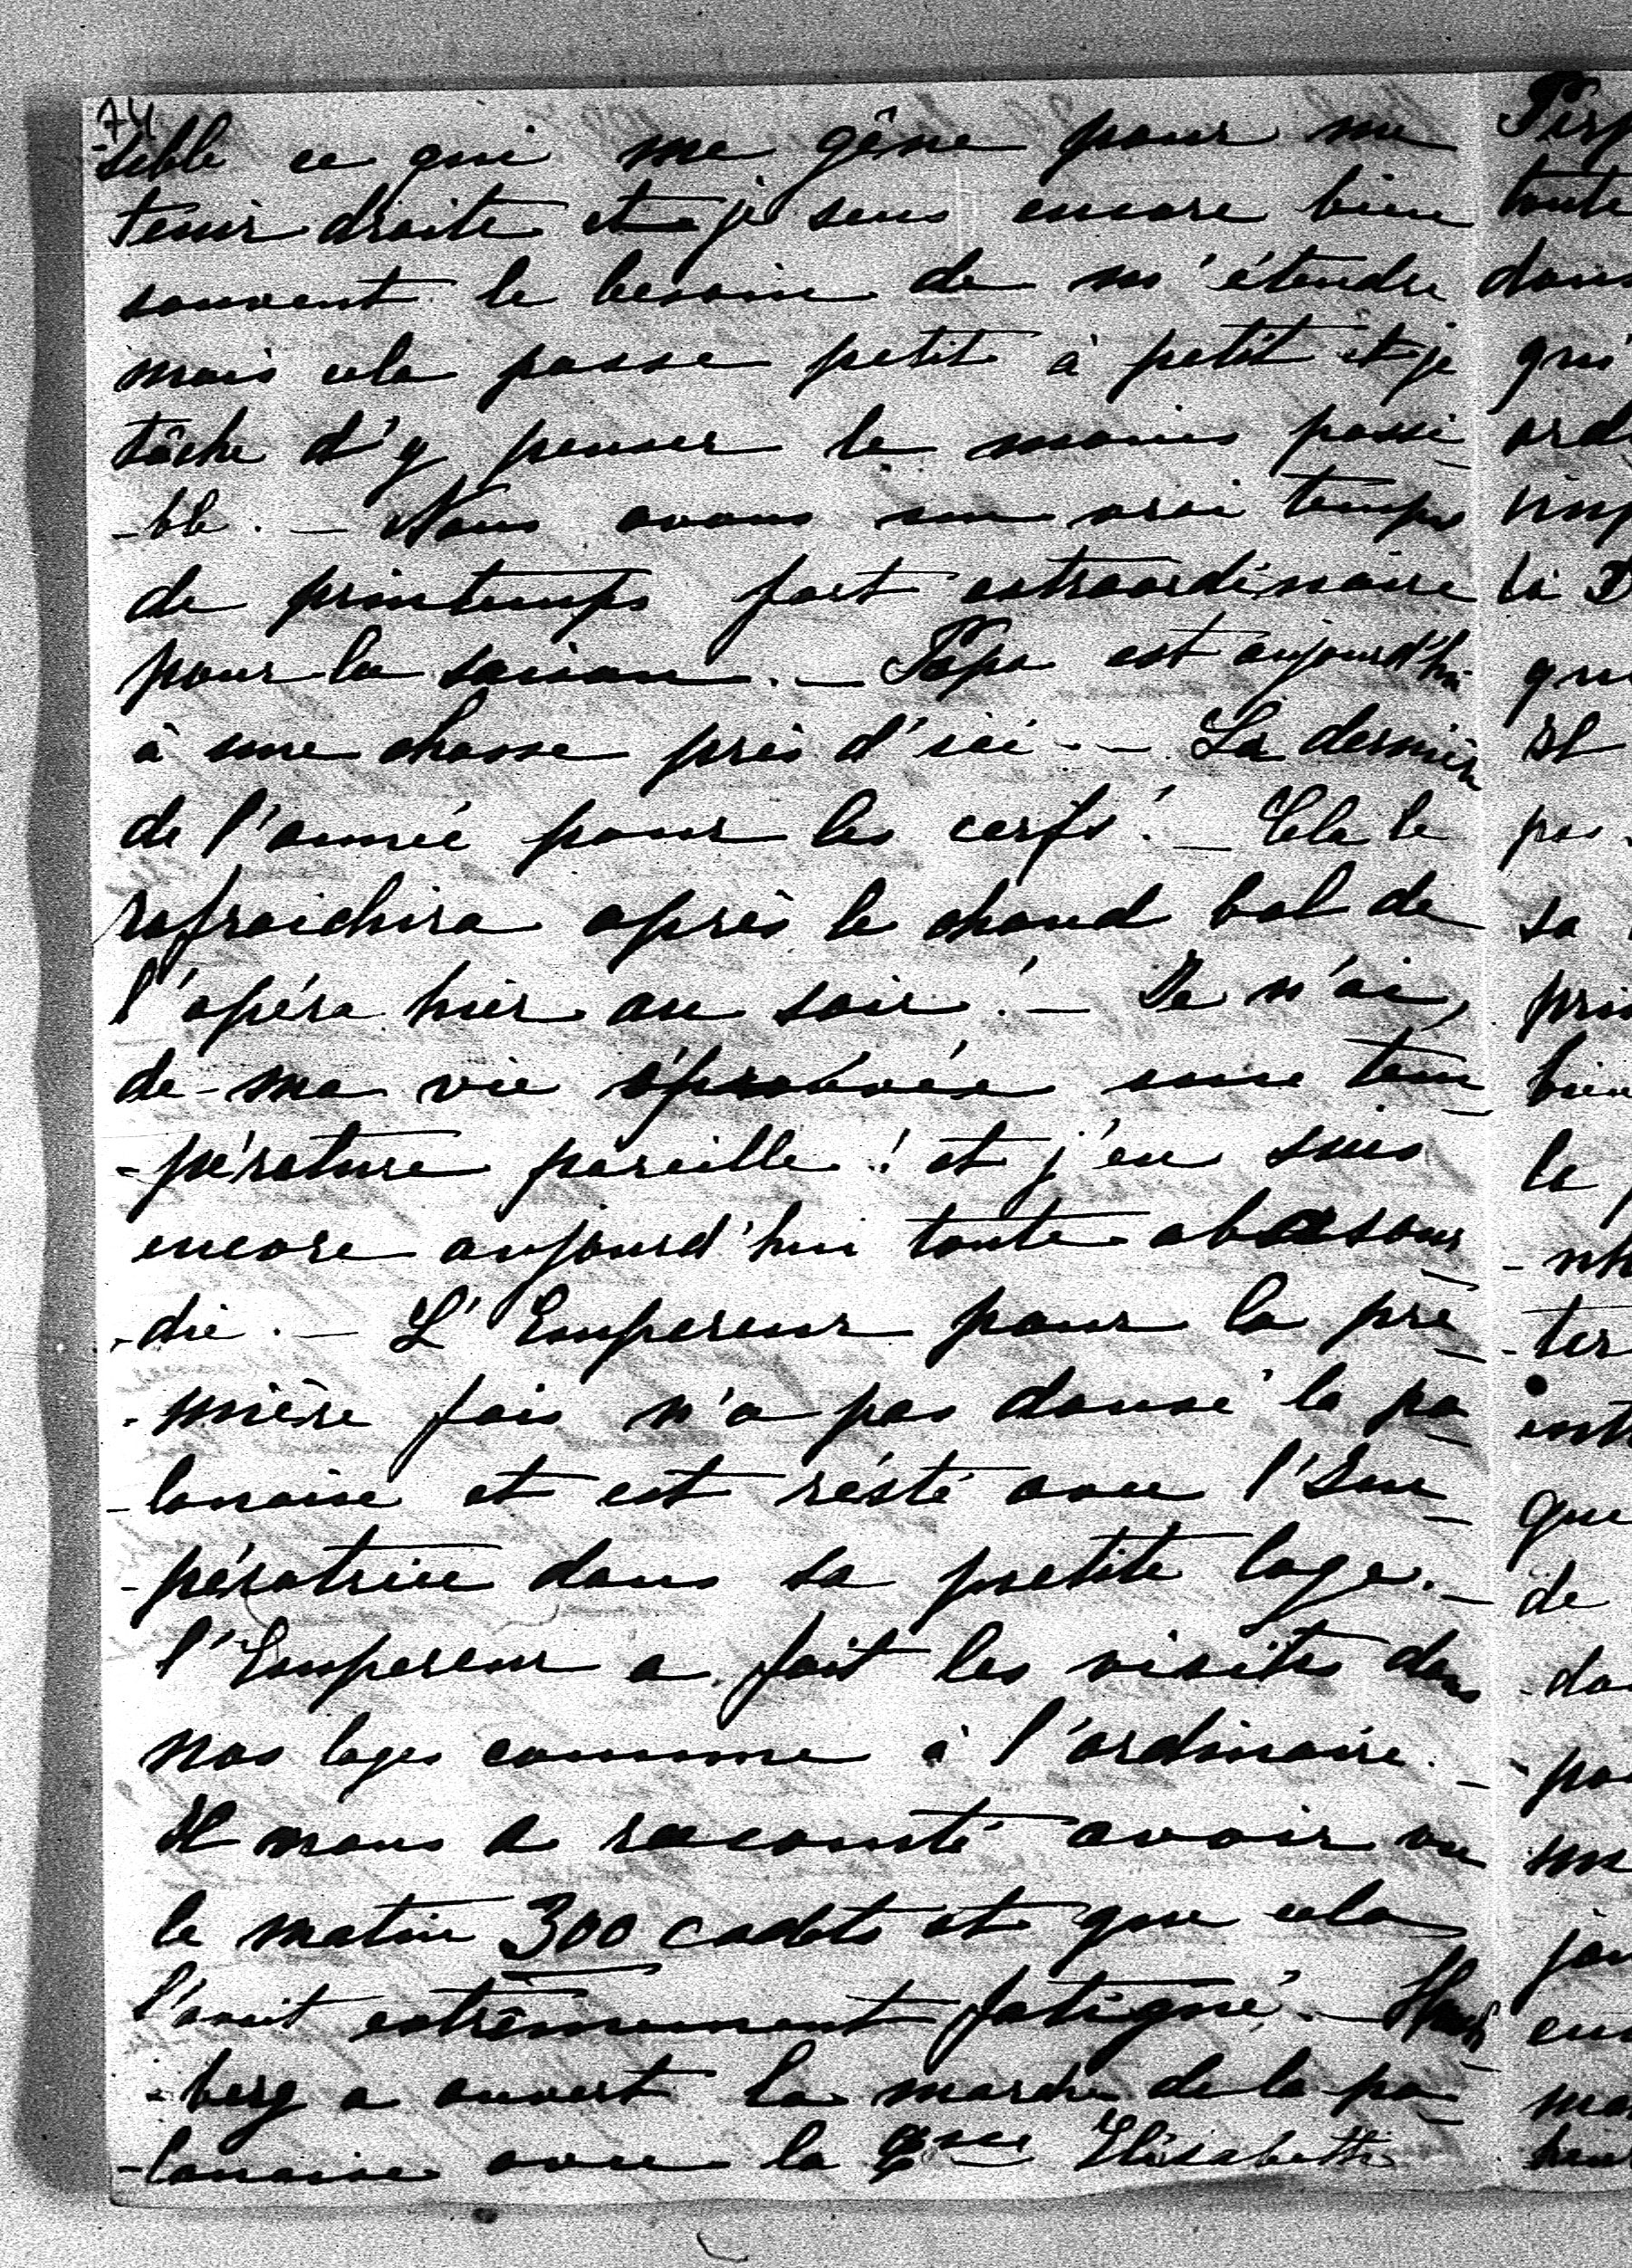 74.
-sible ce qui me gêne pour me
tenir droite et je sens encore bien
souvent le besoin de m'étendre
mais cela passe petit à petit et je
tâche d'y penser le moins possi-
-ble. — Nous avons un vrai temps
de printemps fort extraordinaire
pour la saison. — Papa est aujourd'hui
à une chasse près d'ici. — La dernière
de l'année pour les cerfs! — Cela le
rafraichira après le chaud bal de
l'opéra hier au soir! — Je n'ai,
de ma vie éprouvée une tem-
-pérature pareille! et j'en suis
encore aujourd'hui toute abasour-
-die. — L'Empereur pour la pre-
-mière fois n'a pas dansé la po-
-lonaise et est résté avec l'Im-
-pératrice dans sa petite loge. —
l'Empereur a fait les visites dans
nos loges comme à l'ordinaire. —
Il nous a raconté avoir vu
le matin 300 cadets et que cela
l'avait extrêmement fatigué. —
-berg a ouvert la marche de la po-
-lonaise avec la Elisabeth
toute
dans
qui
sa
le
-ter
que
de